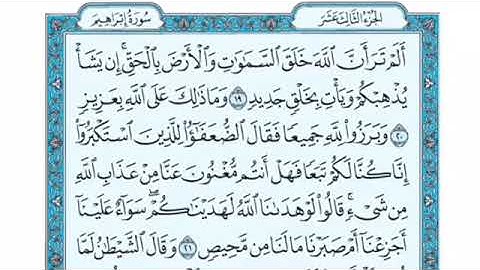 سُورَةُ إِبْرَاهِيمَ
الجُزْءُ الثَّالِثَ عَشَرَ
أَلَمْ تَرَ أَنَّ ٱللَّهَ خَلَقَ ٱلسَّمَٰوَٰتِ وَٱلْأَرْضَ بِٱلْحَقِّ ۚ إِن يَشَأْ
يُذْهِبْكُمْ وَيَأْتِ بِخَلْقٍ جَدِيدٍ ١٩ وَمَا ذَٰلِكَ عَلَى ٱللَّهِ بِعَزِيزٍ
٢٠ وَبَرَزُوا۟ لِلَّهِ جَمِيعًا فَقَالَ ٱلضُّعَفَٰٓؤُا۟ لِلَّذِينَ ٱسْتَكْبَرُوٓا۟
إِنَّا كُنَّا لَكُمْ تَبَعًا فَهَلْ أَنتُم مُّغْنُونَ عَنَّا مِنْ عَذَابِ ٱللَّهِ
مِن شَىْءٍ ۚ قَالُوا۟ لَوْ هَدَىٰنَا ٱللَّهُ لَهَدَيْنَٰكُمْ ۖ سَوَآءٌ عَلَيْنَآ
أَجَزِعْنَآ أَمْ صَبَرْنَا مَا لَنَا مِن مَّحِيصٍ ٢١ وَقَالَ ٱلشَّيْطَٰنُ لَمَّا